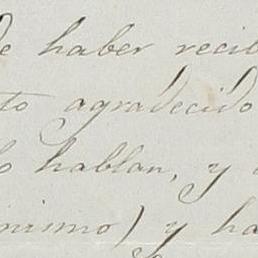 de haber recib
to agradecido
lo hablan, y
nimo) y ha